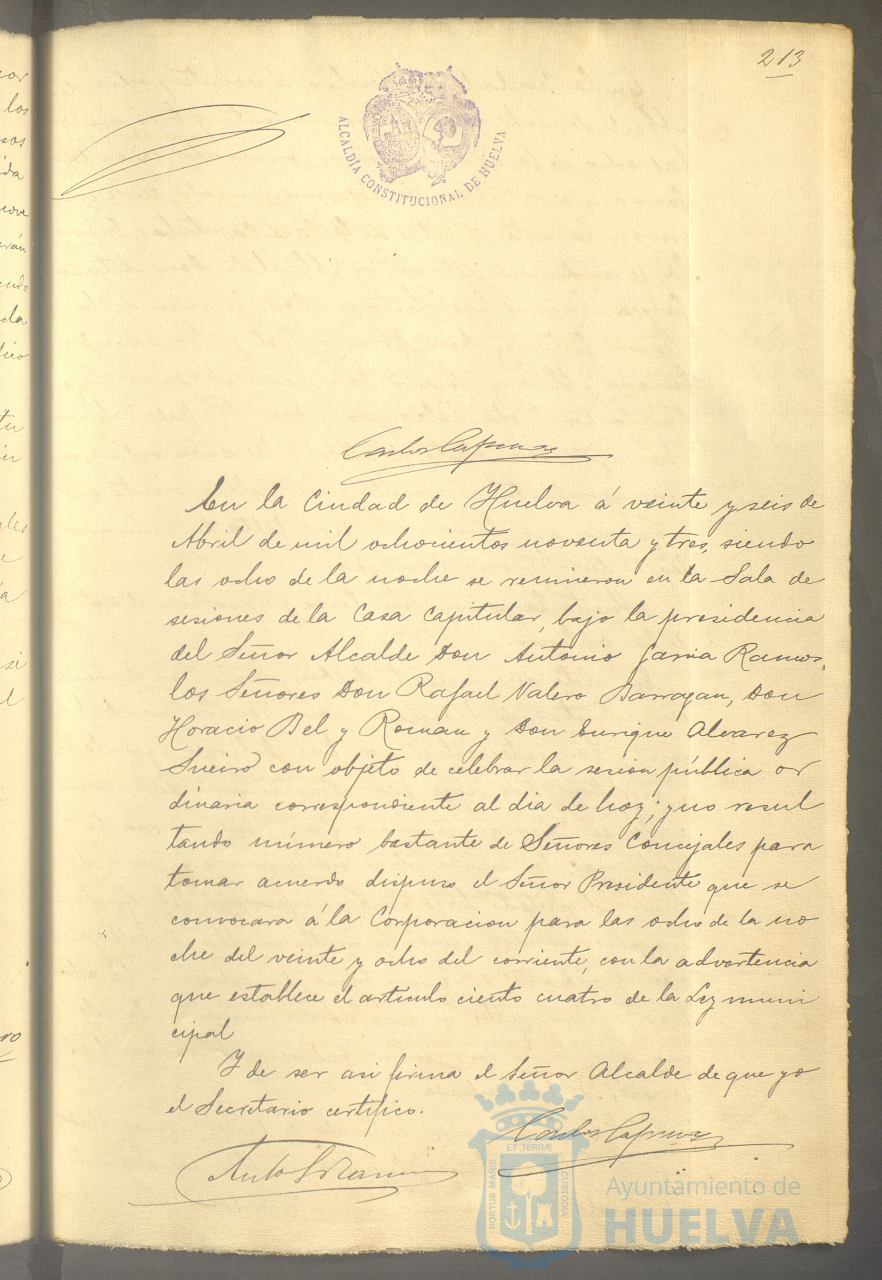 213
ALCALDÍA CONSTITUCIONAL DE HUELVA
En la Ciudad de Huelva á veinte y seis de
Abril de mil ochocientos noventa y tres, siendo
las ocho de la noche se reunieron en la Sala de
sesiones de la Casa Capitular, bajo la presidencia
del Señor Alcalde Don Antonio Garcia Ramos,
los Señores Don Rafael Valero Barragan, Don
Horacio Bel y Roman y Don Enrique Alvarez
Sueiro con objeto de celebrar la sesion pública or
dinaria correspondiente al dia de hoy; y no resul
tando número bastante de Señores Concejales para
tomar acuerdo dispuso el Señor Presidente que se
convocara á la Corporacion para las ocho de la no
che del veinte y ocho del corriente, con la advertencia
que establece el artículo ciento cuatro de la Ley muni
cipal
Y de ser asi firma el Señor Alcalde de que yo
el Secretario certifico.
ET TERRÆ
PORTUS MARIS
CUSTODIA
Ayuntamiento de
HUELVA